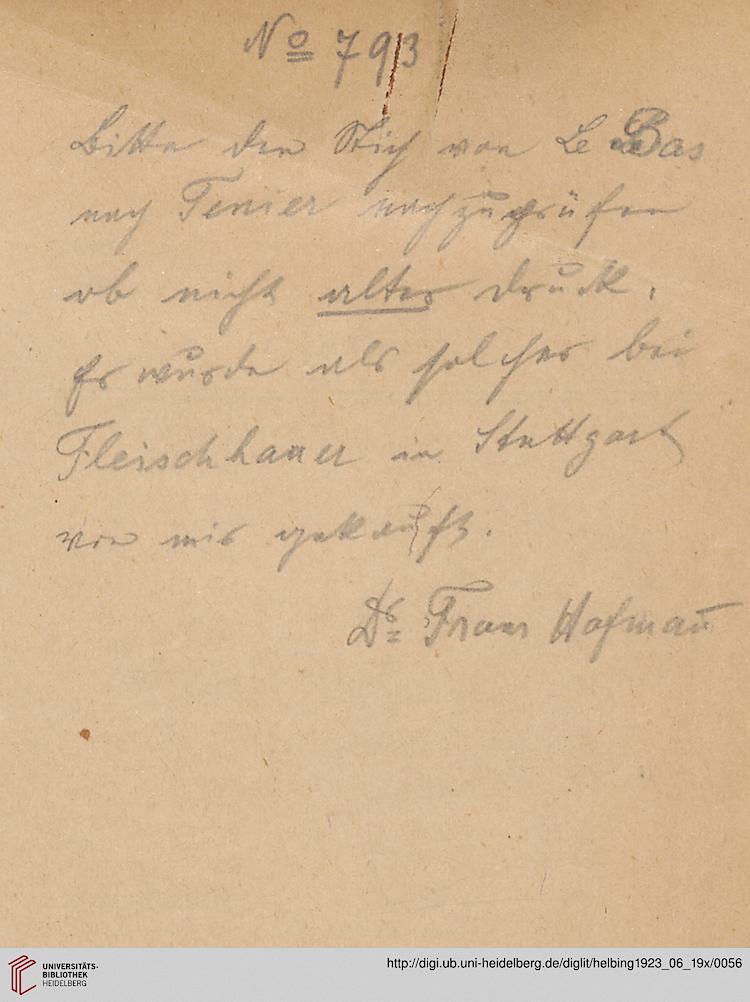 No 793
Bitte den Stich von Le Bas
nach Tenier nachzuprüfen
ob nicht alter Druck.
Er wurde als solcher bei
Fleischhauer in Stuttgart
von mir gekauft.
Dr. Franz Hofmañ
UNIVERSITÄTS-
BIBLIOTHEK
HEIDELBERG
http://digi.ub.uni-heidelberg.de/diglit/helbing1923_06_19x/0056